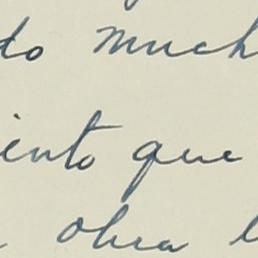 do much
iento que
obra